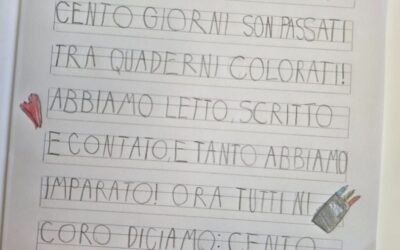 CENTO GIORNI SON PASSATI
TRA QUADERNI COLORATI!
ABBIAMO LETTO, SCRITTO
E CONTATO, E TANTO ABBIAMO
IMPARATO! ORA TUTTI NI
CORO DICIAMO: CENTO